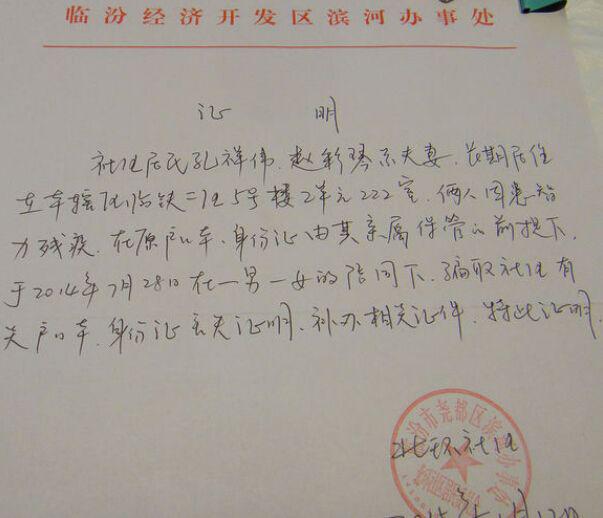 临汾经济开发区滨河办事处
证 明
社区居民孔祥伟、赵彩琴系夫妻，长期居住
在本辖区临铁二区5号楼2单元222室，俩人因患智
力残疾，在原户口本、身份证由其亲属保管的前提下，
于2014年7月28日在一男一女的陪同下，骗取社区有
关户口本、身份证丢失证明，补办相关证件，特此证明。
汾市尧都区滨
北环社区